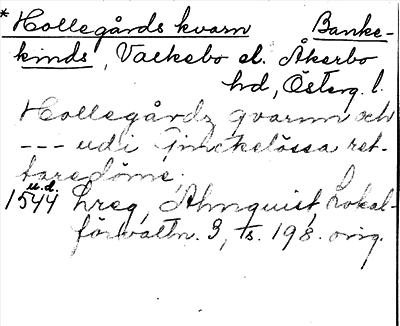 * Hollegårds kvarn Banke-
kinds, Valkebo el. Åkerbo
hd, Österg. l.
Hollegårdz qvarnn och
--- udi Ginckelössa ret-
taredöme,
u.d.
1544 Lreg, Almquist, Lokal-
förvaltn. 3, ts. 198. orig.